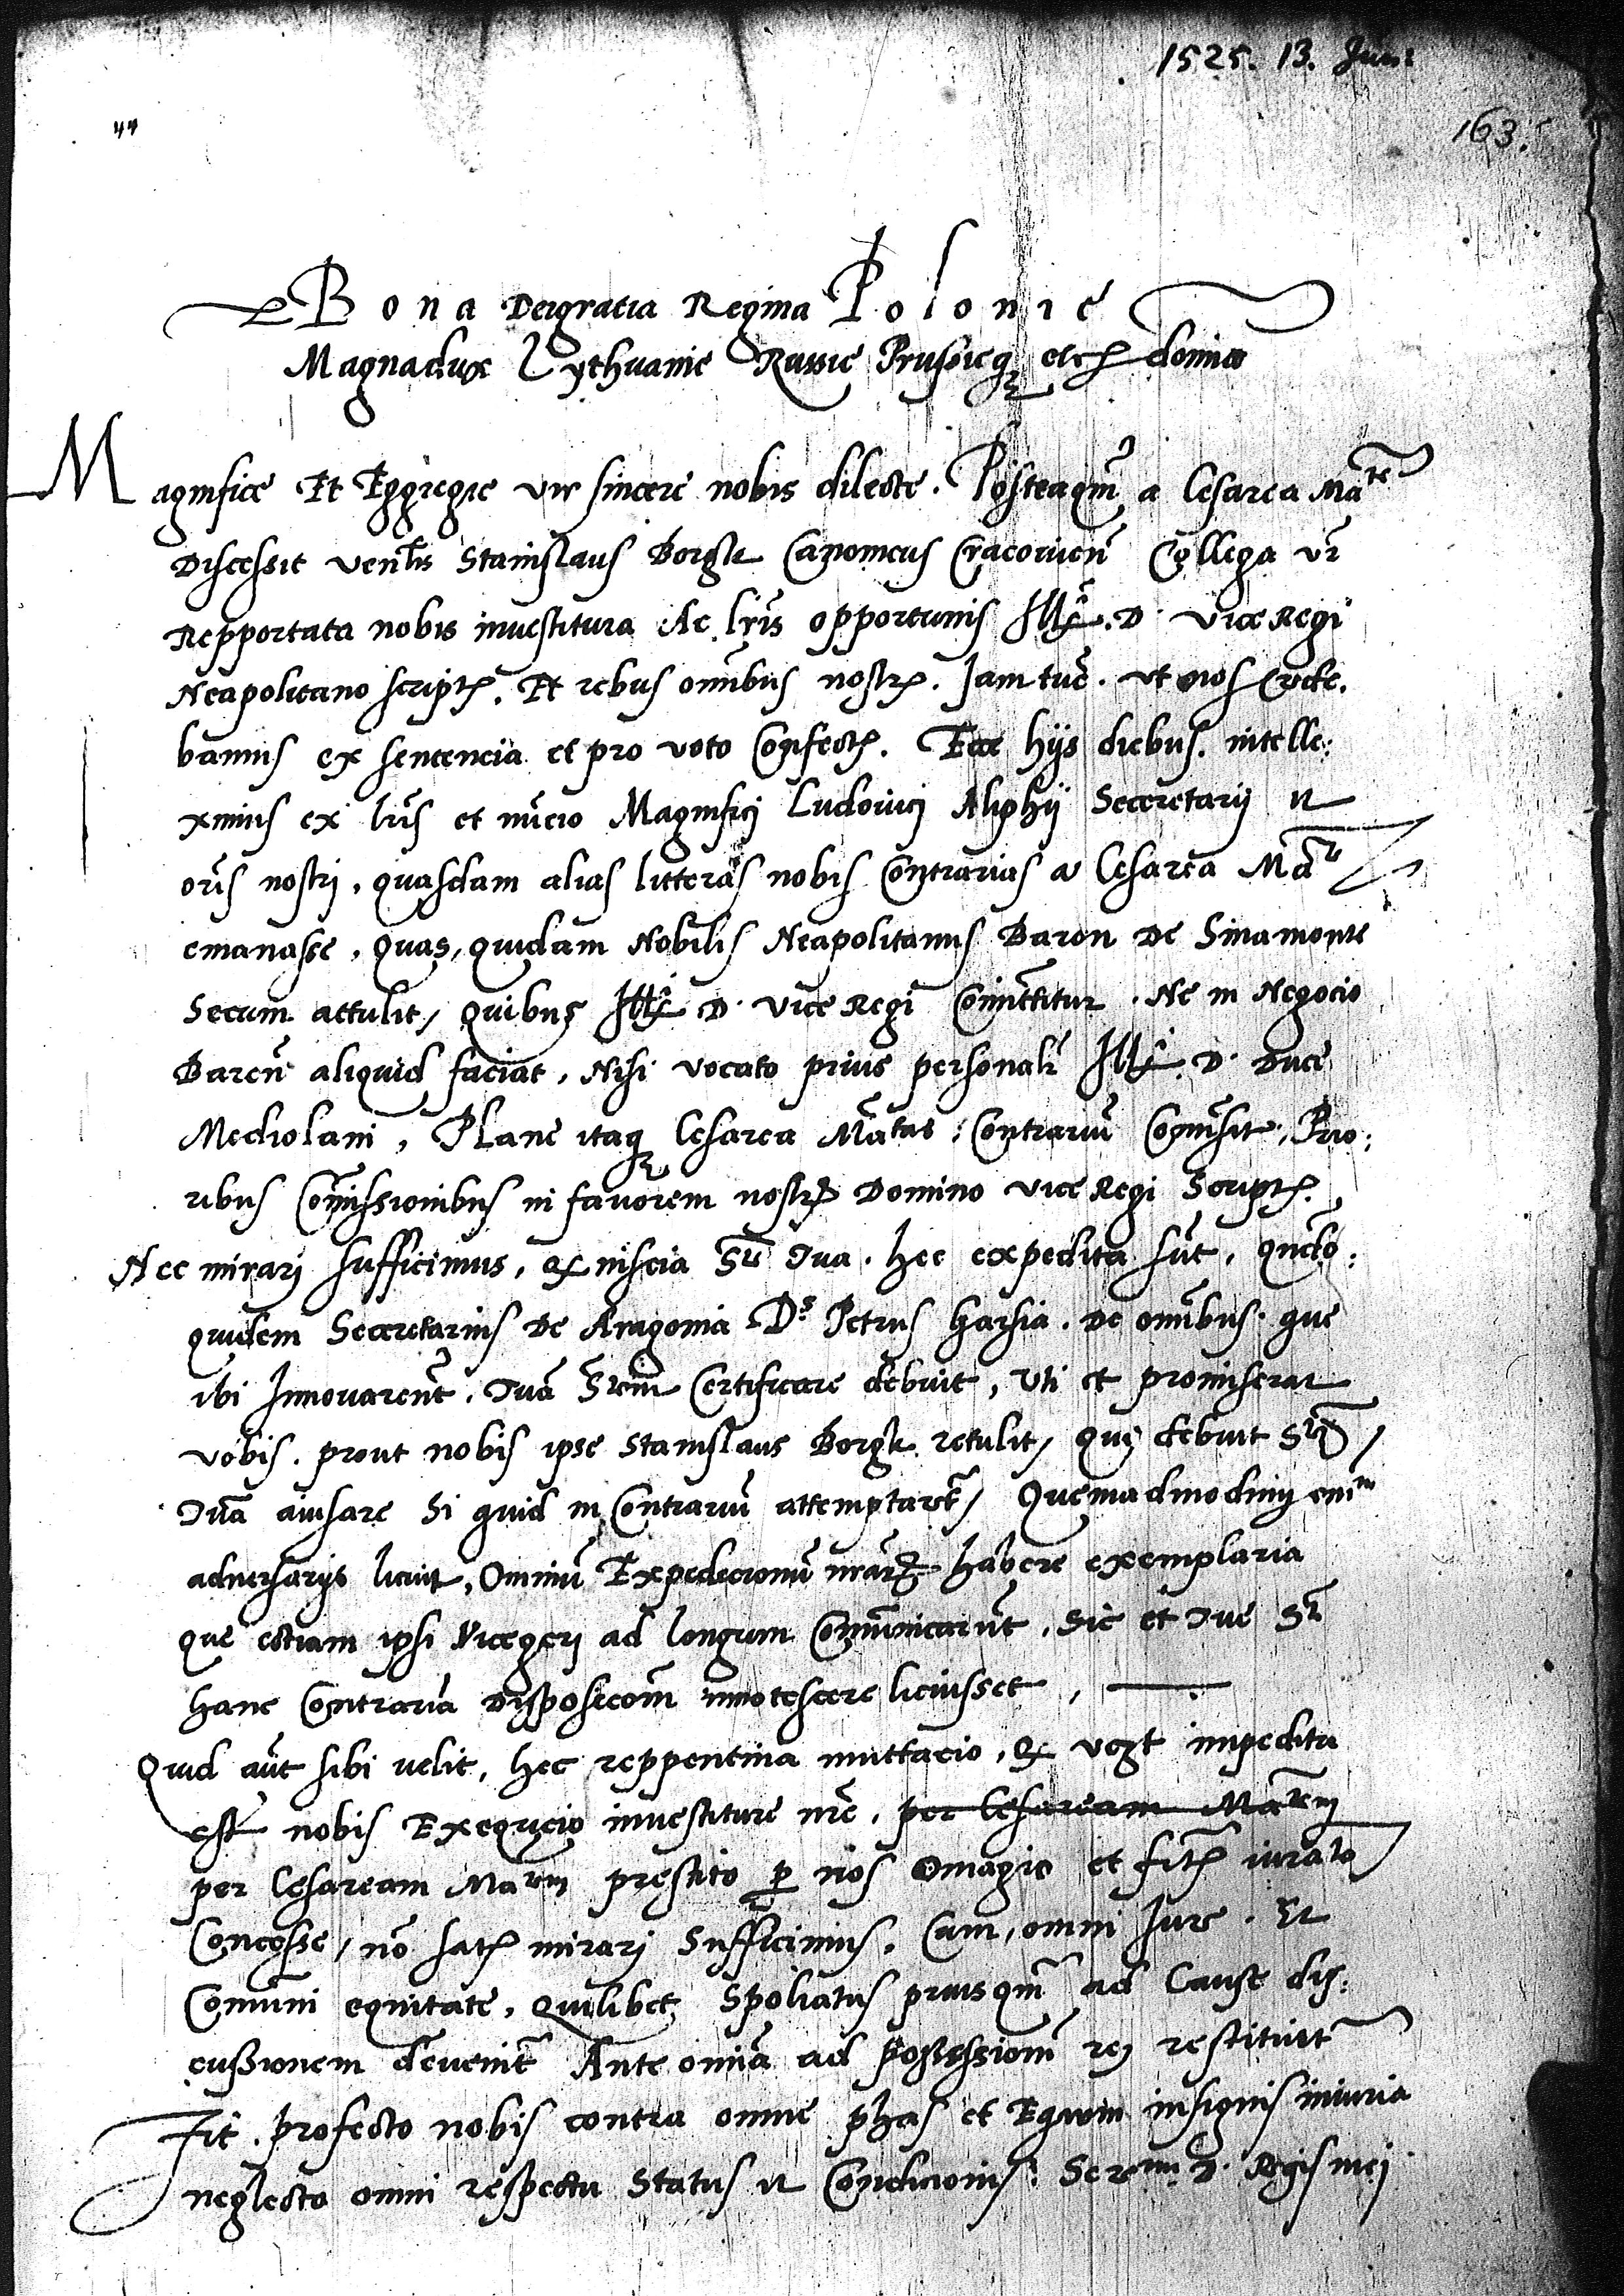 1525. 13. Juni
44
163.
Bona Dei gratia Regina Polonie
Magnadux Lythuanie Russie Prussieq3 etc domina
Magnifice Et Eggregie vir sincere nobis dilecte. Posteaqm̃ a Cesarea Ma͠te
Discessit ven̄lis Stanislaus Borgk Canonicus Cracovien̄ Collega vr̄
Repportata nobis investitura Ac lr̄is opportunis Ill̄. D. vice Regi
Neapolitano script. Et rebus omībus nostr. Iam tūc. ut nos Crede.
bamus ex sentencia et pro voto Confect. Ecce hijs diebus. intelle:
ximus ex lr̄is et nūcio Magnifici Ludovici Aliphij Secretarij et
orīs nostri, quasdam alias litteras nobis Contrarias a Cesarea Ma͠te
emanasse, quas, quidam Nobilis Neapolitanus Baron de Sinamonte
Secum attulit, quibus Ill̄ D. vice Regi Comīttitur. Ne in Negocio
Baren̄ aliquid faciat, Nisi vocato prius personalr̄ Ill̄. D. Duce
Mediolani, Plane itaq3 Cesarea Ma͠tas, Contrariū Comīsit, Prio:
ribus Comīssionibus in favorem nostr Domino vice Regi Script.
Nec mirari sufficimus, q niscia S͠te Tua. hec expedita sūt, qn̄do:
quidem Secretarius de Aragonia Ds Petrus Harsia. De omībus. que
ibi Innovarent̄. Tuā S͠tem Certificare debuit, Uti et promiserat
vobis. prout nobis ipse Stanislaus Borgk retulit, qui debuit S͠tem
Tuā avisare Si quid in Contrariū attemptaret̄, Quemadmodum enim
adversarijs licuit, Omniū Expedicionū nr̄ar habere exemplaria
que etiam ipsi Viceregi ad longum Comūnicarūt, Sic et Tue S͠ti
hanc Contrariā Disposicom̄ innotescere licuisset,
Quid aūt sibi velit, hec reppentina muttacio, q impedita
est nobis Exequcio investiture nr̄e, per Cesaream Ma͠tem
per Cesaream Matem prestito p nos Omagio et fit iurato
Concesse, nō sat mirari Sufficimus. Cum, omni Iure. Et
Comūni equitate, quilibet Spoliatus priusqm̄ ad Cause dis:
cussionem devenit̄ Ante omīa ad possessiom̄ rei restituit̄
Fit. profecto nobis contra omne phas et Equum insignis iniuria
neglecto omni respectu Status et Condicionis. Sermi D. Regis mei